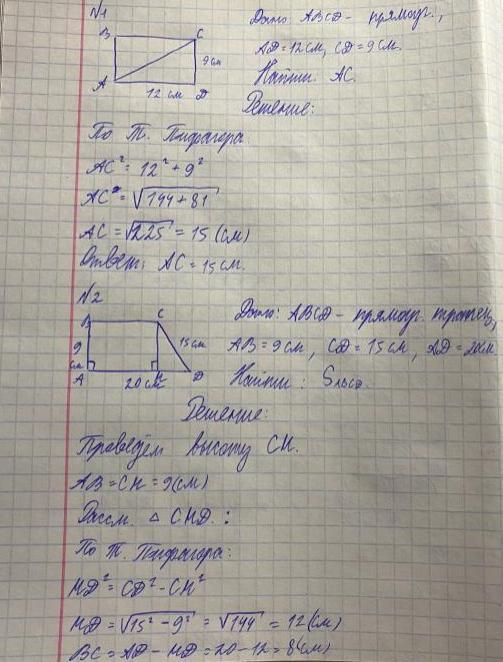 N1
Дано ABCD - прямоуг.,
AD=12см, CD=9см.
Найти AC.
Решение:
B C
9см
A 12 см D
По Т. Пифагора
AC²=12²+9²
AC²=√144+81
AC=√225=15 (см)
Ответ: AC=15см.
N2
Дано: ABCD - прямоуг. трапец,
AB=9см, CD=15см, AD=20см
Найти: Sabcd.
B C
9 см 15см
A 20см H D
Решение:
Проведём высоту CH.
AB=CH=9(см)
Рассм. △ CHD:
По Т. Пифагора:
HD²=CD²-CH²
HD=√15²-9²=√144=12(см)
BC=AD-HD=20-12=8(см)